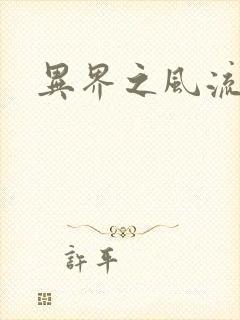 異界之風流
許平